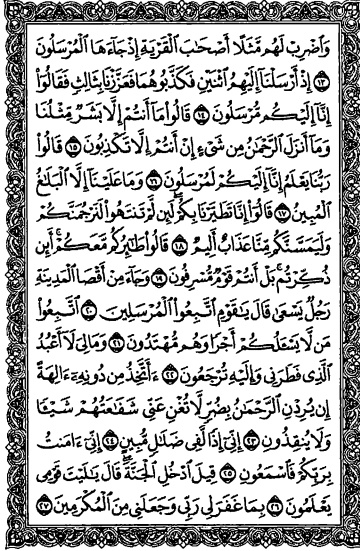 وَٱضْرِبْ لَهُم مَّثَلًا أَصْحَٰبَ ٱلْقَرْيَةِ إِذْ جَآءَهَا ٱلْمُرْسَلُونَ
١٣ إِذْ أَرْسَلْنَآ إِلَيْهِمُ ٱثْنَيْنِ فَكَذَّبُوهُمَا فَعَزَّزْنَا بِثَالِثٍ فَقَالُوٓا۟
إِنَّآ إِلَيْكُم مُّرْسَلُونَ ١٤ قَالُوا۟ مَآ أَنتُمْ إِلَّا بَشَرٌ مِّثْلُنَا
وَمَآ أَنزَلَ ٱلرَّحْمَٰنُ مِن شَىْءٍ إِنْ أَنتُمْ إِلَّا تَكْذِبُونَ ١٥ قَالُوا۟
رَبُّنَا يَعْلَمُ إِنَّآ إِلَيْكُمْ لَمُرْسَلُونَ ١٦ وَمَا عَلَيْنَآ إِلَّا ٱلْبَلَٰغُ
ٱلْمُبِينُ ١٧ قَالُوٓا۟ إِنَّا تَطَيَّرْنَا بِكُمْ لَئِن لَّمْ تَنتَهُوا۟ لَنَرْجُمَنَّكُمْ
وَلَيَمَسَّنَّكُم مِّنَّا عَذَابٌ أَلِيمٌ ١٨ قَالُوا۟ طَٰٓئِرُكُم مَّعَكُمْ أَئِن
ذُكِّرْتُم بَلْ أَنتُمْ قَوْمٌ مُّسْرِفُونَ ١٩ وَجَآءَ مِنْ أَقْصَا ٱلْمَدِينَةِ
رَجُلٌ يَسْعَىٰ قَالَ يَٰقَوْمِ ٱتَّبِعُوا۟ ٱلْمُرْسَلِينَ ٢٠ ٱتَّبِعُوا۟
مَن لَّا يَسْـَٔلُكُمْ أَجْرًا وَهُم مُّهْتَدُونَ ٢١ وَمَا لِىَ لَآ أَعْبُدُ
ٱلَّذِى فَطَرَنِى وَإِلَيْهِ تُرْجَعُونَ ٢٢ ءَأَتَّخِذُ مِن دُونِهِۦٓ ءَالِهَةً
إِن يُرِدْنِ ٱلرَّحْمَٰنُ بِضُرٍّ لَّا تُغْنِ عَنِّى شَفَٰعَتُهُمْ شَيْـًٔا
وَلَا يُنقِذُونِ ٢٣ إِنِّىٓ إِذًا لَّفِى ضَلَٰلٍ مُّبِينٍ ٢٤ إِنِّىٓ ءَامَنتُ
بِرَبِّكُمْ فَٱسْمَعُونِ ٢٥ قِيلَ ٱدْخُلِ ٱلْجَنَّةَ قَالَ يَٰلَيْتَ قَوْمِى
يَعْلَمُونَ ٢٦ بِمَا غَفَرَ لِى رَبِّى وَجَعَلَنِى مِنَ ٱلْمُكْرَمِينَ ٢٧